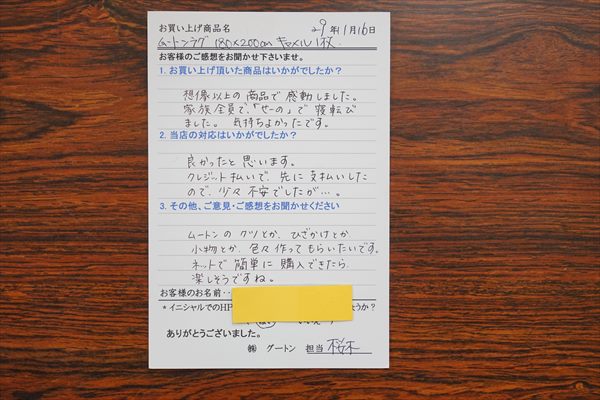 お買い上げ商品名 29年11月16日
ムートンラグ 180×200cm キャメル 1枚.
お客様のご感想をお聞かせ下さいませ。
1. お買い上げ頂いた商品はいかがでしたか？
想像以上の商品で感動しました。
家族全員で、「せーの」で寝転び
ました。気持ちよかったです。
2. 当店の対応はいかがでしたか？
良かったと思います。
クレジット払いで、先に支払いした
ので、少々不安でしたが…。
3. その他、ご意見・ご感想をお聞かせください
ムートンのクツとか、ひざかけとか
小物とか、色々作ってもらいたいです。
ネットで簡単に購入できたら
楽しそうですね。
お客様のお名前・・
*イニシャルでのHP ょうか？
はい
ありがとうございました。
㈱ グートン 担当 桜木